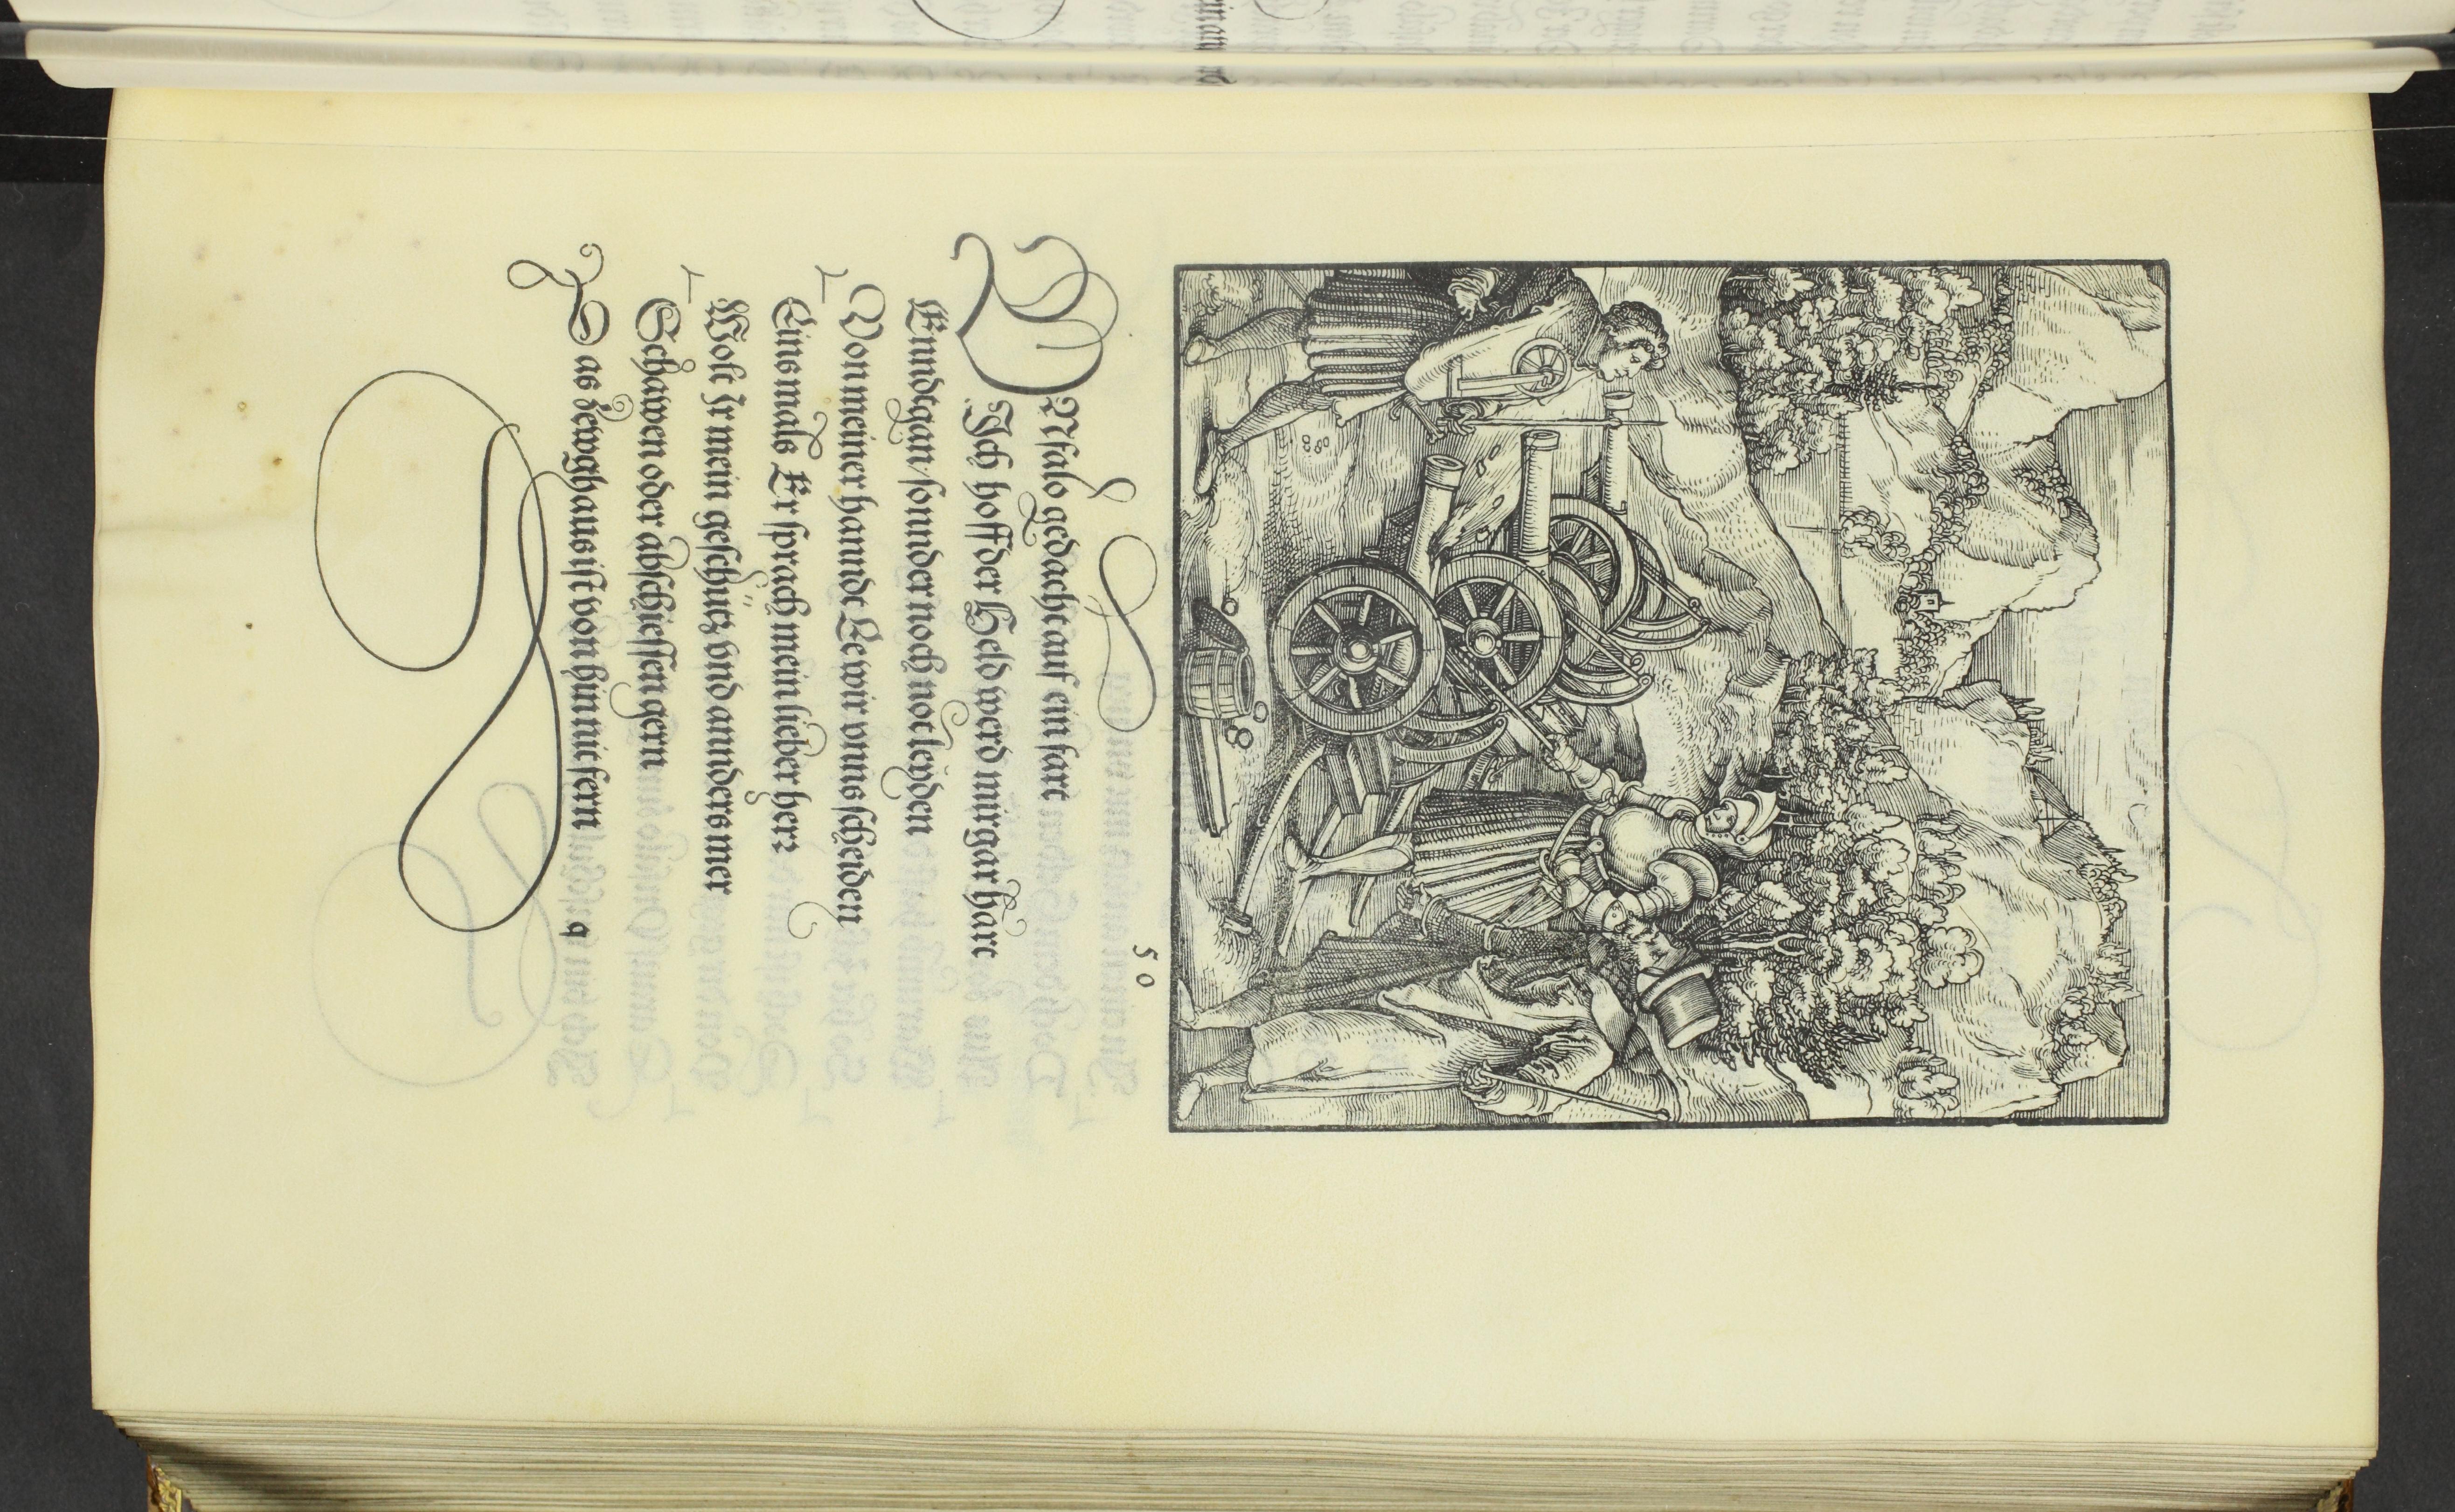 50
VNfalo gedacht auf ein fart
Ich hoff der Held werd mir gar hart
Enndtgan / ſonnder noch not leyden
Von meiner hanndt Ee wir vnns ſcheiden
Eins mals Er ſprach mein lieber herr
Wolt Ir mein geſchütz vnd annders mer
Schawen oder abſchieſſen gern
Das zewghaus iſt von hin nit fern
q